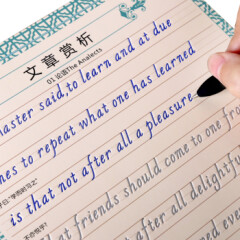 文章赏析
01 论语The Analects
master said,to learn and at due
mes to repeat what one has learned
is that not after all a pleasure
at friends should come to one fro
after all delightful